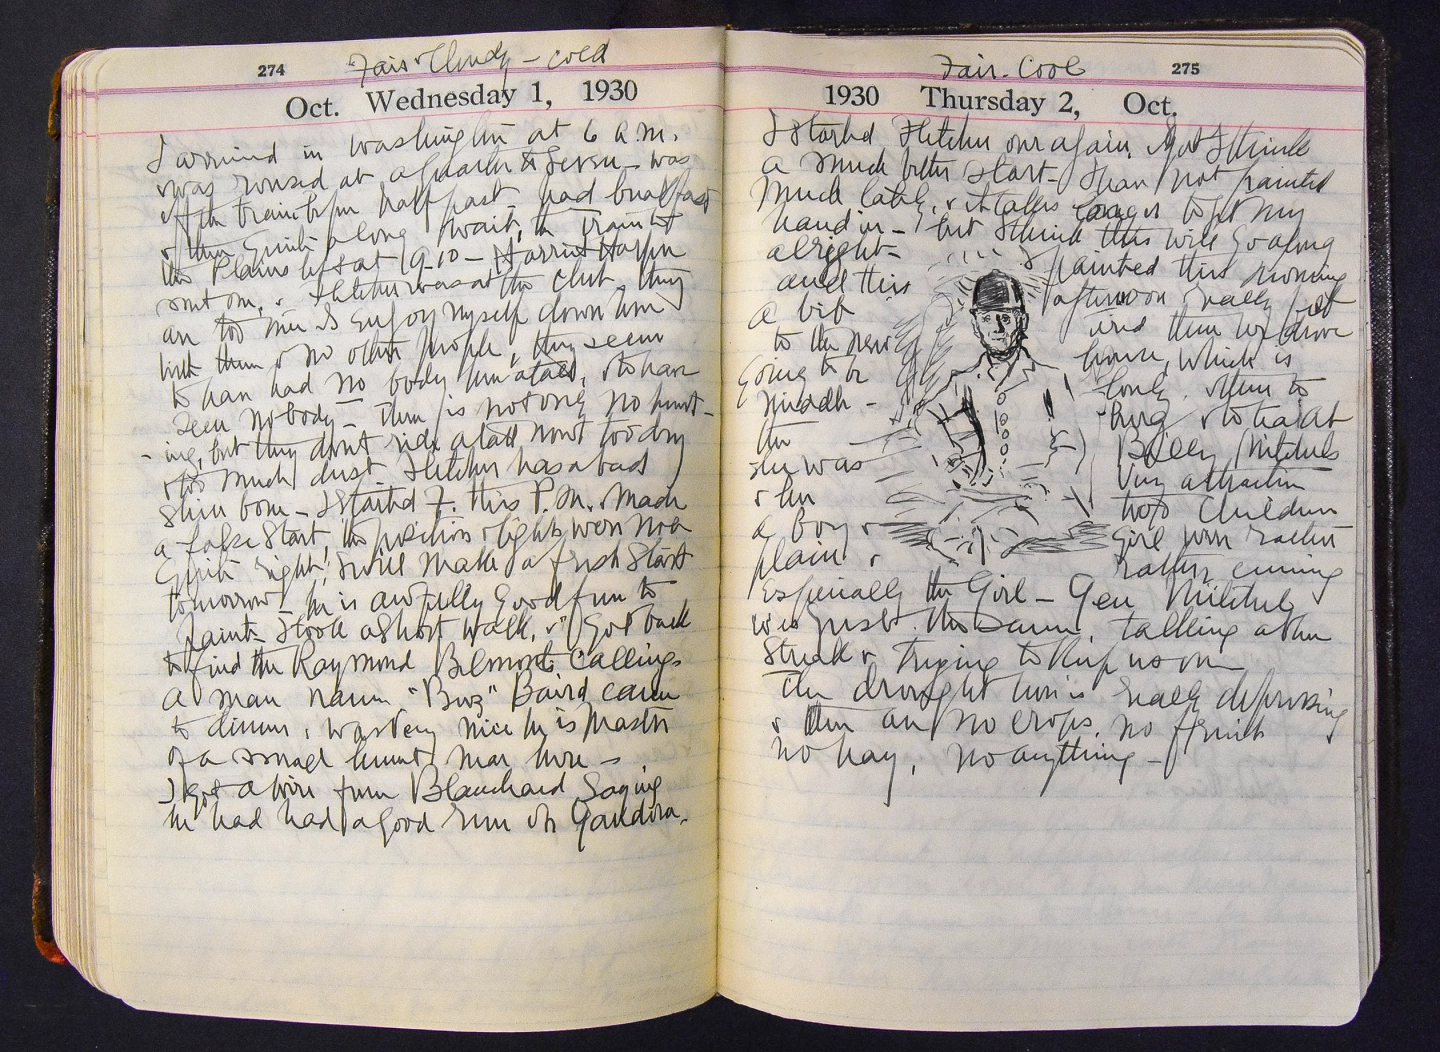 274
Fair & Cloudy - cold
Oct. Wednesday 1, 1930
I arrived in Washington at 6 A.M.
was roused at a quarter to seven - was
off the train before half past - had breakfast
& then quite a long wait, the train to
the Plains left at 9-10 - Harriet Harper
sent on, & Fletcher was at the Club. They
are too nice I enjoy myself down here
with them & no other people, they seem
to have had no body here at all, & to have
seen no body - There is not only no hunt-
- ing, but they don't ride at all now & too dry
& too much dust Fletcher has a bad
shin bone - I started F. this P.M. & made
a false start, the position & lights were not
quite right, I will make a fresh start
tomorrow - he is awfully good fun to
paint - I took a short walk, & I got back
to find the Raymond Belmonts calling.
A man named "Buz" Baird came
to dinner, & was very nice he is Master
of a small hunt near here -
I got a wire from Blanchard saying
he had had a good run on Gandora.
275
Fair. Cool
1930 Thursday 2, Oct.
I started Fletcher over again, & got I think
a much better start - I have not painted
much lately, & it takes longer to get my
hand in - but I think this will go along
alright - painted this morning
and this afternoon really just
a bit and then we drove
to the new house, which is
going to be lovely. then to
Midd
the burg & to tea at
Billy Mitchels
she was very attractive
& her two children
a boy & girl were rather
plain & rather cunning
especially the Girl - Gen Mitchel
was just the same, talking a blue
streak & trying to keep us on
The drought here is really depressing
& there are no crops, no fruit
no hay, no anything -